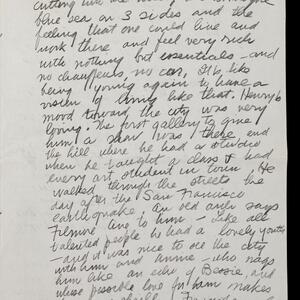 blue sea on 3 sides and the
feeling that one could live and
work there and feel very rich
with nothing but essentials – and
no chauffeurs, no car. It is like
being young again to have a
of living like that. Henry's
mood toward the city was very
loving. The first gallery to give
him a show was there and
the hill where he had a studio
where he taught a class & had
every art student in town. He
walked through the streets the
day after the San Francisco
earthquake. Our old arch sags
Filmore to him – Like all
talented people he had a lovely youth
– and it was nice to see the city
with him and Annie, who nags
him like an echo of Bessie, and
whose possible love for him makes